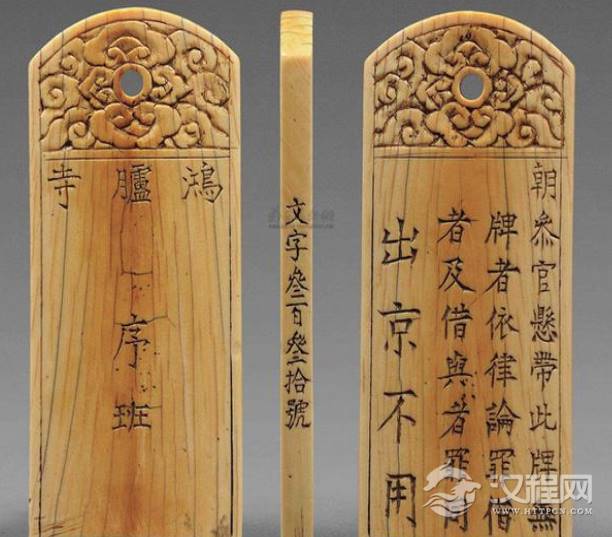 鴻臚寺
序班
文字叁百叁拾號
朝叅官懸帶此牌無
牌者依律論罪借
者及借與者罪同
出京不用
汉程网
HTTPCN.COM